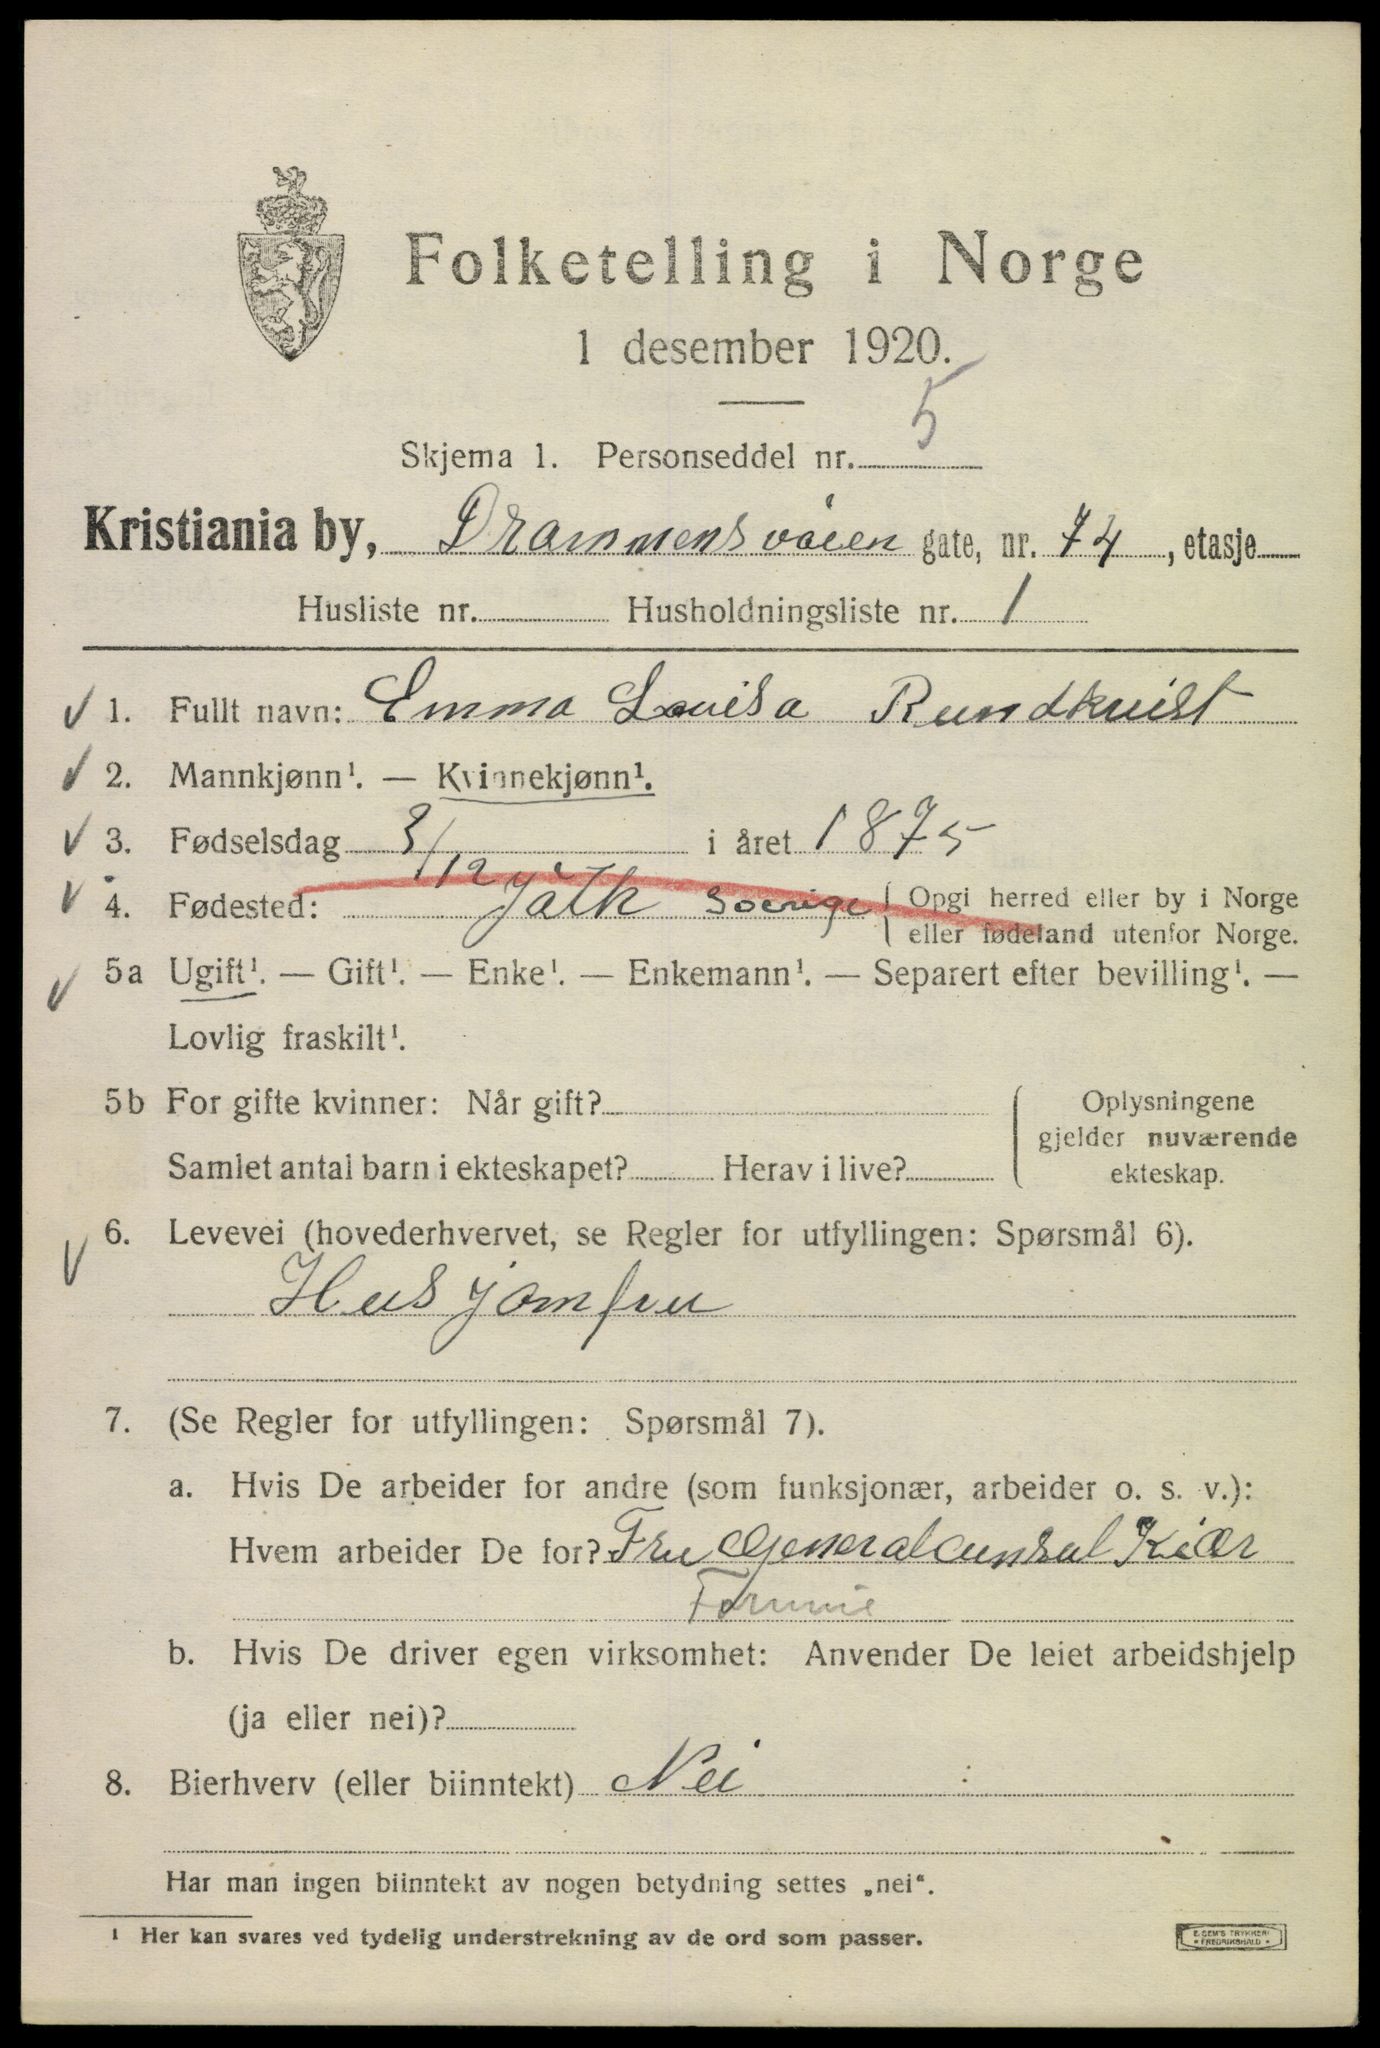 Folketelling i Norge
1 desember 1920.
Skjema 1. Personseddel nr. 5
Kristiania by, Drammensvæien gate, nr. 74, etasje
Husliste nr. Husholdningsliste nr. 1
1. Fullt navn: Emma Lovisa Rundkvist
2. Mannkjønn¹. — Kvinnekjønn¹.
3. Fødselsdag 3/12 i året 1875
4. Fødested: Soerige { Opgi herred eller by i Norge
eller fødeland utenfor Norge.
5a Ugift¹. — Gift¹. — Enke¹. — Enkemann¹. — Separert efter bevilling¹. —
Lovlig fraskilt¹.
5b For gifte kvinner: Når gift? { Oplysningene
gjelder nuværende
Samlet antal barn i ekteskapet? Herav i live? ekteskap.
6. Levevei (hovederhvervet, se Regler for utfyllingen: Spørsmål 6).
Husjomfru
7. (Se Regler for utfyllingen: Spørsmål 7).
a. Hvis De arbeider for andre (som funksjonær, arbeider o. s. v.):
Hvem arbeider De for? Fru Generalcunsul Kiær
b. Hvis De driver egen virksomhet: Anvender De leiet arbeidshjelp
(ja eller nei)?
8. Bierhverv (eller biinntekt) Nei
Har man ingen biinntekt av nogen betydning settes „nei“.
¹ Her kan svares ved tydelig understrekning av de ord som passer.
E. SEM'S TRYKKERI
* FREDRIKSHALD *